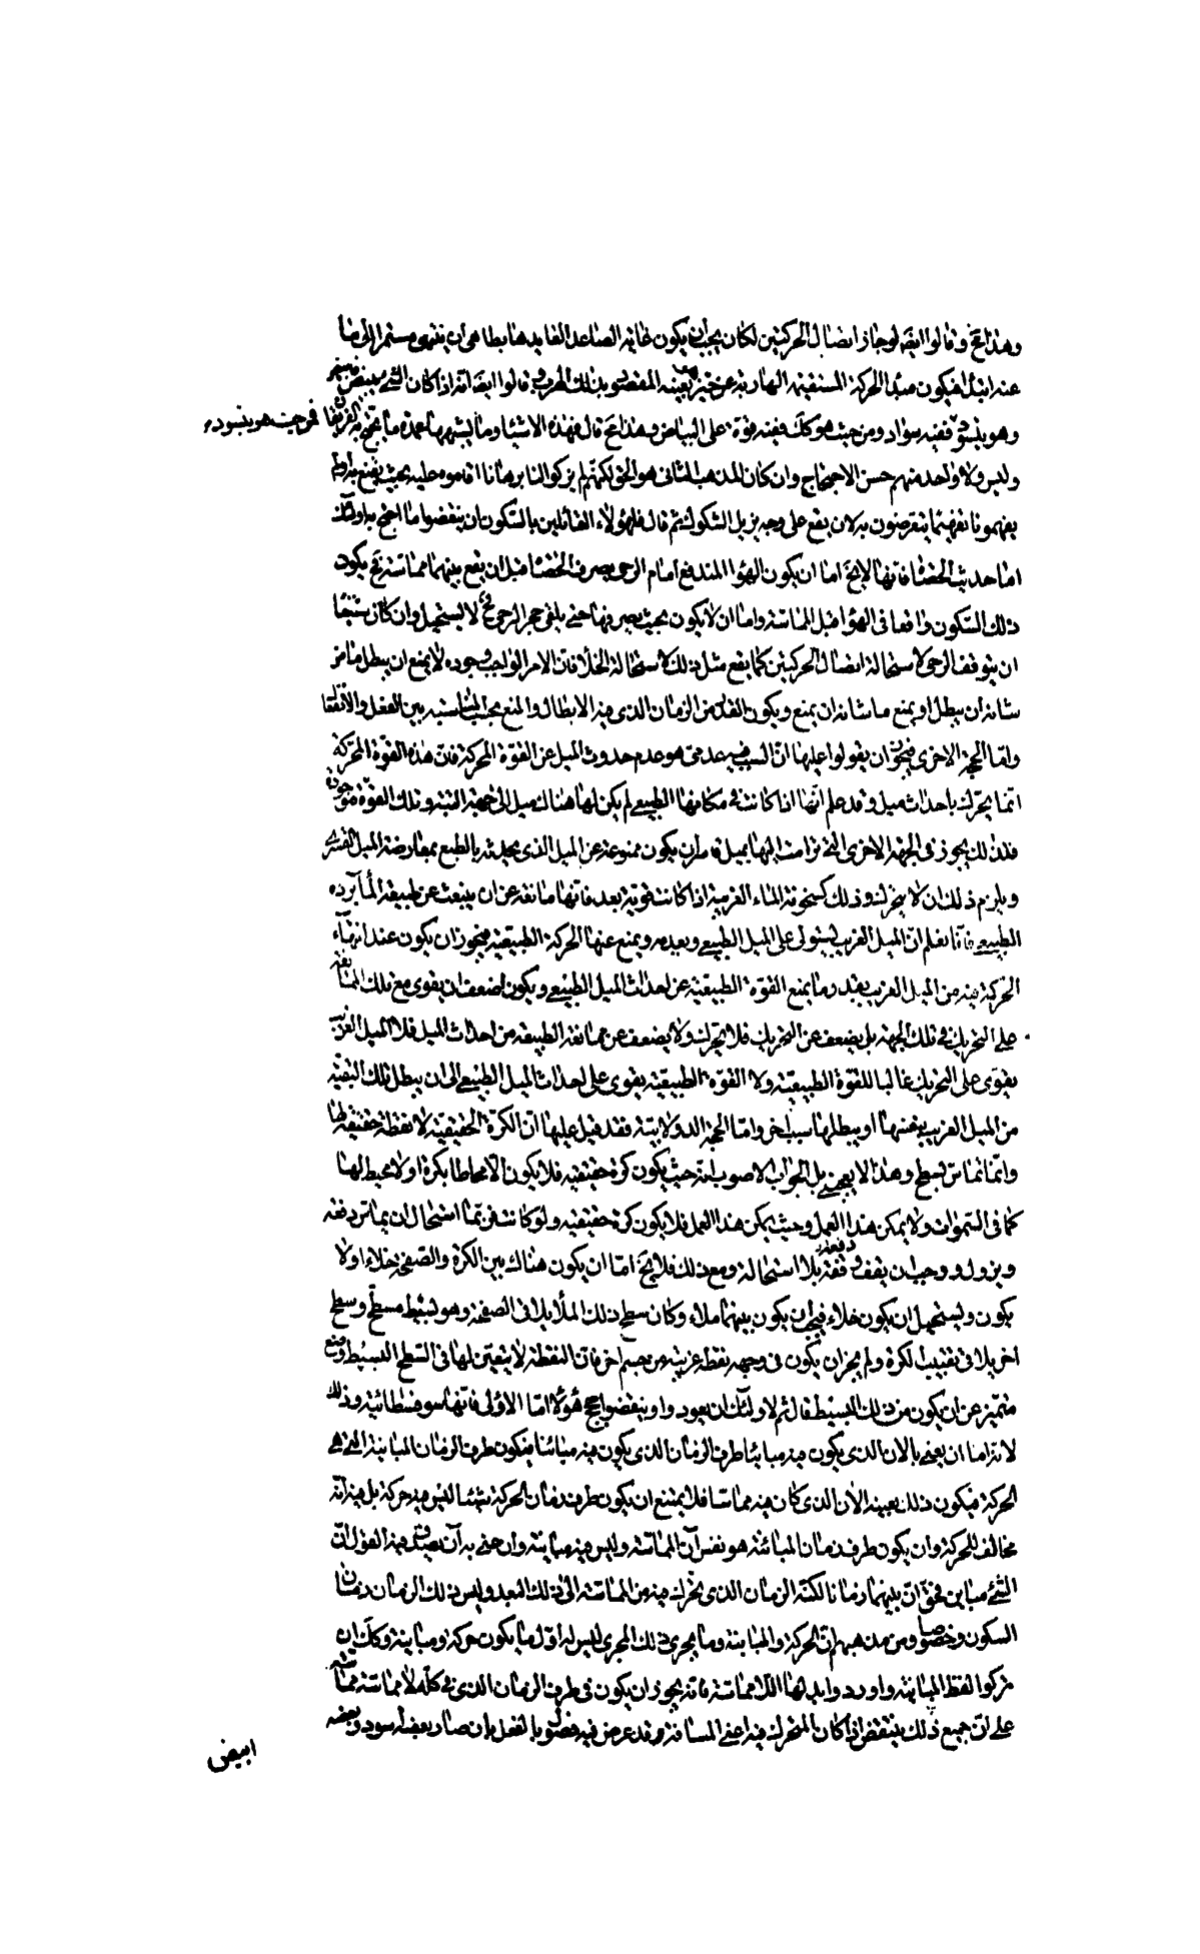 وهذا مح وقالوا ايضا لو جاز اتصال الحركتين لكان يجب ان يكون غاية الصاعد العايد هابطا هي ان ينتهي مستمرا الى ما
عنه ابتدا فيكون مبدا الحركة المستقيمة الهاربة عن حيز بعينه المقصود بذلك الهرب وقالوا ايضا انه اذا كان الشئ يبيض فيبيض
وهو يتسود ففيه سواد ومن حيث هو كك ففيه قوة على البياض وهذا مح قال فهذه الاشياء وما يشبهها عمدة ما يحتج به الفريقان
فمن حيث هو يتسود
وليس ولا واحد منهم حسن الاحتجاج وان كان المذهب الثاني هو الحق لكنهم لم يذكروا لنا برهانا اقاموه عليه بحيث يقنع به او لم
يفهمونا تفهيما يتعرضون به لان يقع على وجه يزيل الشكوك ثم قال فلهؤلاء القائلين بالسكون ان ينقضوا ما احتج به اولئك
اما حديث الحصاة فانها لا يخ اما ان يكون الهواء المندفع امام الرحى يصرف الحصاة قبل ان يقع بينهما مماسة فح يكون
ذلك السكون واقعا في الهواء قبل المماسة واما ان لا يكون بحيث يصرفها حتى يلقى حجر الرحى فح لا يستحيل وان كان شنيعا
ان يتوقف الرحى لاستحالة اتصال الحركتين كما يقع مثل ذلك لاستحالة الخلأ فان الامر الواجب وجوده لا يمنع ان يبطل ما من
شانه ان يبطل او يمنع ما شانه ان يمنع ويكون القدر من الزمان الذي فيه الابطال والمنع بحسب المناسبة بين الفعل والانفعال
واما الحجة الاخرى فيجوز ان يقولوا عليها ان السبب فيه عدمي هو عدم حدوث الميل عن القوة المحركة فان هذه القوة المحركة
انما يحرك باحداث ميل وقد علم انها اذا كانت في مكانها الطبيعي لم يكن لها هناك ميل الى جهة البتة وتلك القوة موجودة
فلذلك يجوز في الجهة الاخرى التي ترامت اليها بميل قاسر ان يكون ممنوعة عن الميل الذي يحدثه بالطبع بمعارضة الميل القسري
ويلزم ذلك ان لا يتحرك وذلك كسخونة الماء الغريبة اذا كانت قوية بعد فانها مانعة عن ان ينبعث عن طبيعة الماء برده
الطبيعي فانا نعلم ان الميل الغريب يستولي على الميل الطبيعي ويعدمه ويمنع عنها الحركة الطبيعية فيجوز ان يكون عند انتهاء
الحركة فيه من الميل الغريب بقدر ما يمنع القوة الطبيعية عن احداث الميل الطبيعي ويكون اضعف ان يقوى مع تلك الممانعة
على التحريك في تلك الجهة بل يضعف عن التحريك فلا يتحرك ولا يضعف عن ممانعة الطبيعة من احداث الميل فلا الميل الغريب
يقوى على التحريك غالبا للقوة الطبيعية ولا القوة الطبيعية يقوى على احداث الميل الطبيعي الى ان يبطل تلك البقية
من الميل الغريب بنفسها او يبطلها سبب اخر واما الحجة الدولابية فقد قيل عليها ان الكرة الحقيقية لا نقطة حقيقية لها
وانما تماس بسطح وهذا لا يعجبني بل الجواب الاصوب انه حيث يكون كرة حقيقية فلا يكون الا محاطا بكرة او لا محيط لها
كما في السموات ولا يمكن هذا العمل وحيث يمكن هذا العمل فلا يكون كرة حقيقية ولو كانت فربما استحال ان يماس دفعة
ويزول ووجب ان يقف وقفة بلا استحالة ومع ذلك فلا يخ اما ان يكون هناك بين الكرة والصفحة خلاء او لا
دفعة
يكون ويستحيل ان يكون خلاء فيجب ان يكون بينهما ملاء وكان سطح ذلك الملأ يلاقي الصفحة وهو بسيط مسطح وسطح
اخر يلاقي تقبيب الكرة ولم يجز ان يكون في وجهه نقطة غريبة من جسم اخر فان النقطة لا يتعين لها في السطح البسيط وضع
متميز عن ان يكون من ذلك البسيط قال ثم لاولئك ان يعودوا وينقضوا حجج هؤلاء اما الاولى فانها سوفسطائية وذلك
لانه اما ان يعنى بالان الذي يكون فيه مباينا طرف الزمان الذي يكون فيه مباينا فيكون طرف الزمان المباينة التي هي
الحركة فيكون ذلك بعينه الان الذي كان فيه مماسا فلا يمتنع ان يكون طرف زمان الحركة شيئا ليس فيه حركة بل فيه انه
مخالف للحركة وان يكون طرف زمان المباينة هو نفس آن المماسة وليس فيه مباينة وان عنى به آن يصدق فيه القول ان
الشئ مباين فحق ان بينهما زمانا لكنه الزمان الذي تحرك فيه من المماسة الى ذلك البعد وليس ذلك الزمان زمان
السكون وخصوصا ومن مذهبهم ان الحركة والمباينة وما يجري ذلك المجرى ليس له اول ما يكون حركة ومباينة وكك ان
تركوا لفظ المباينة واوردوا بدلها اللا مماسة فانه يجوز ان يكون في طرف الزمان الذي في كله لا مماسة مماسة
على ان جميع ذلك ينتقض اذا كان المتحرك فيه اعني المسافة قد عرض فيه فصول بالفعل بان صار بعضه اسود وبعضه
ابيض